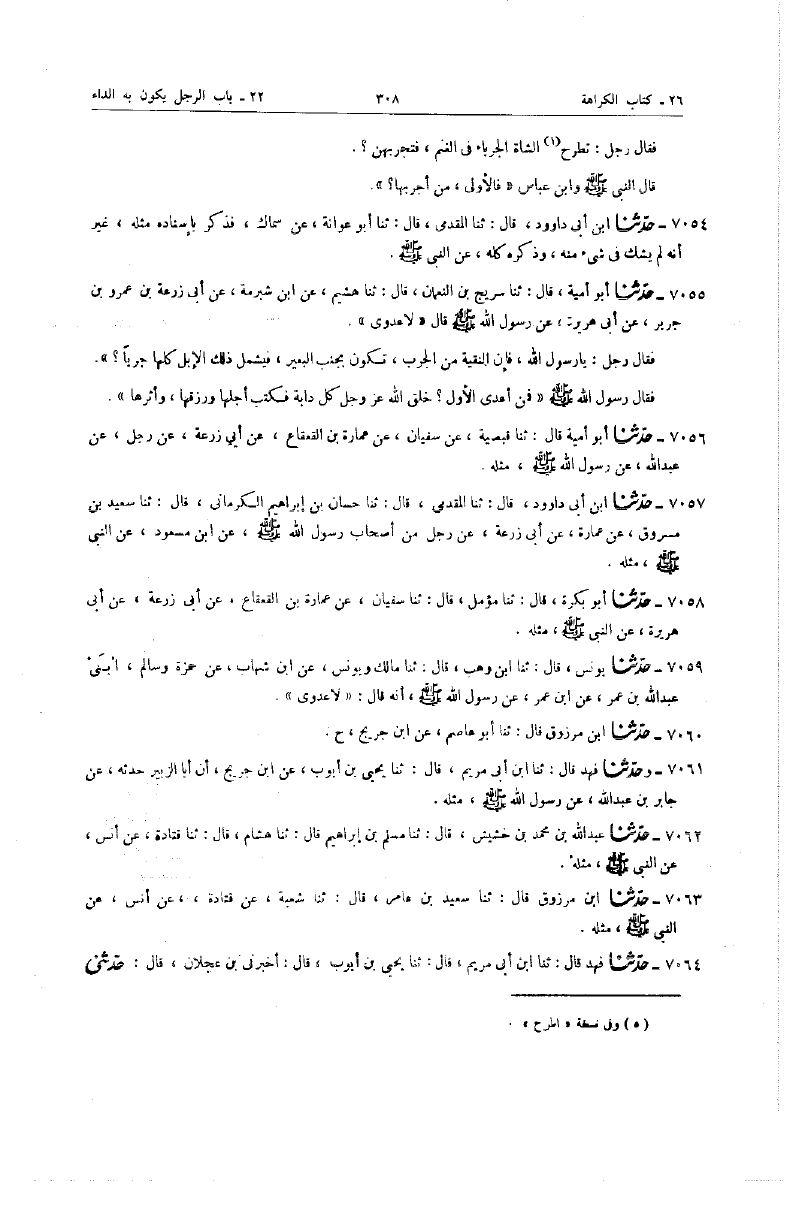 ٢٦ ـ كتاب الكراهة ٣٠٨ ٢٢ ـ باب الرجل يكون به الداء
فقال رجل : تطرح(١) الشاة الجرباء فى الغنم ، فتجربهن ؟ .
قال النبى ﷺ وابن عباس « فالأولى ، من أجربها؟ ».
٧٠٥٤ ـ حدّثنا ابن أبى داوود ، قال : ثنا المقدمى ، قال : ثنا أبو عوانة ، عن سماك ، فذكر بإسناده مثله ، غير
أنه لم يشك فى شىء منه ، وذكره كله ، عن النبى ﷺ .
٧٠٥٥ ـ حدّثنا أبو أمية ، قال : ثنا سريج بن النعمان ، قال : ثنا هشيم ، عن ابن شبرمة ، عن أبى زرعة بن عمرو بن
جرير ، عن أبى هريرة ، عن رسول الله ﷺ قال « لاعدوى » .
فقال رجل : يارسول الله ، فإن النقبة من الجرب ، تكون بجنب البعير ، فيشمل ذلك الإبل كلها جرباً ؟ ».
فقال رسول الله ﷺ « فمن أعدى الأول ؟ خلق الله عز وجل كل دابة فكتب أجلها ورزقها ، وأثرها » .
٧٠٥٦ ـ حدّثنا أبو أمية قال : ثنا قبصية ، عن سفيان ، عن عمارة بن القعقاع ، عن أبي زرعة ، عن رجل ، عن
عبدالله ، عن رسول الله ﷺ ، مثله .
٧٠٥٧ ـ حدّثنا ابن أبى داوود ، قال : ثنا المقدمي ، قال : ثنا حسان بن إبراهيم الكرمانى ، قال : ثنا سعيد بن
مسروق ، عن عمارة ، عن أبى زرعة ، عن رجل من أصحاب رسول الله ﷺ ، عن ابن مسعود ، عن النبى
ﷺ ، مثله .
٧٠٥٨ ـ حدّثنا أبو بكرة ، قال : ثنا مؤمل ، قال : ثنا سفيان ، عن عمارة بن القعقاع ، عن أبى زرعة ، عن أبى
هريرة ، عن النبى ﷺ ، مثله .
٧٠٥٩ ـ حدّثنا يونس ، قال : ثنا ابن وهب ، قال : ثنا مالك ويونس ، عن ابن شهاب ، عن حمزة وسالم ، ابنى
عبدالله بن عمر ، عن ابن عمر ، عن رسول الله ﷺ ، أنه قال : « لاعدوى » .
٧٠٦٠ ـ حدّثنا ابن مرزوق قال : ثنا أبو عاصم ، عن ابن جريج ، ح .
٧٠٦١ ـ وحدّثنا فهد قال : ثنا ابن أبى مريم ، قال : ثنا يحيى بن أيوب ، عن ابن جريج ، أن أبا الزبير حدثه ، عن
جابر بن عبدالله ، عن رسول الله ﷺ ، مثله .
٧٠٦٢ ـ حدّثنا عبدالله بن محمد بن خشيش ، قال : ثنا مسلم بن إبراهيم قال : ثنا هشام ، قال : ثنا قتادة ، عن أنس ،
عن النبى ﷺ ، مثله .
٧٠٦٣ ـ حدّثنا ابن مرزوق قال : ثنا سعيد بن عامر ، قال : ثنا شعبة ، عن قتادة ، ، عن أنس ، عن
النبى ﷺ ، مثله .
٧٠٦٤ ـ حدّثنا فهد قال : ثنا ابن أبى مريم ، قال : ثنا يحيى بن أيوب ، قال : أخبرنى بن عجلان ، قال : حدّثنى
(٥) وفى نسخة « اطرح » .